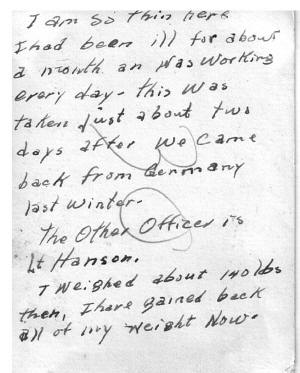 I am so thin here
I had been ill for about
a month an was working
every day - this was
taken just about two
days after we came
back from Germany
last winter.
The Other Officer is
Lt Hanson.
I weighed about 140 lbs
then, I have gained back
all of my weight now.